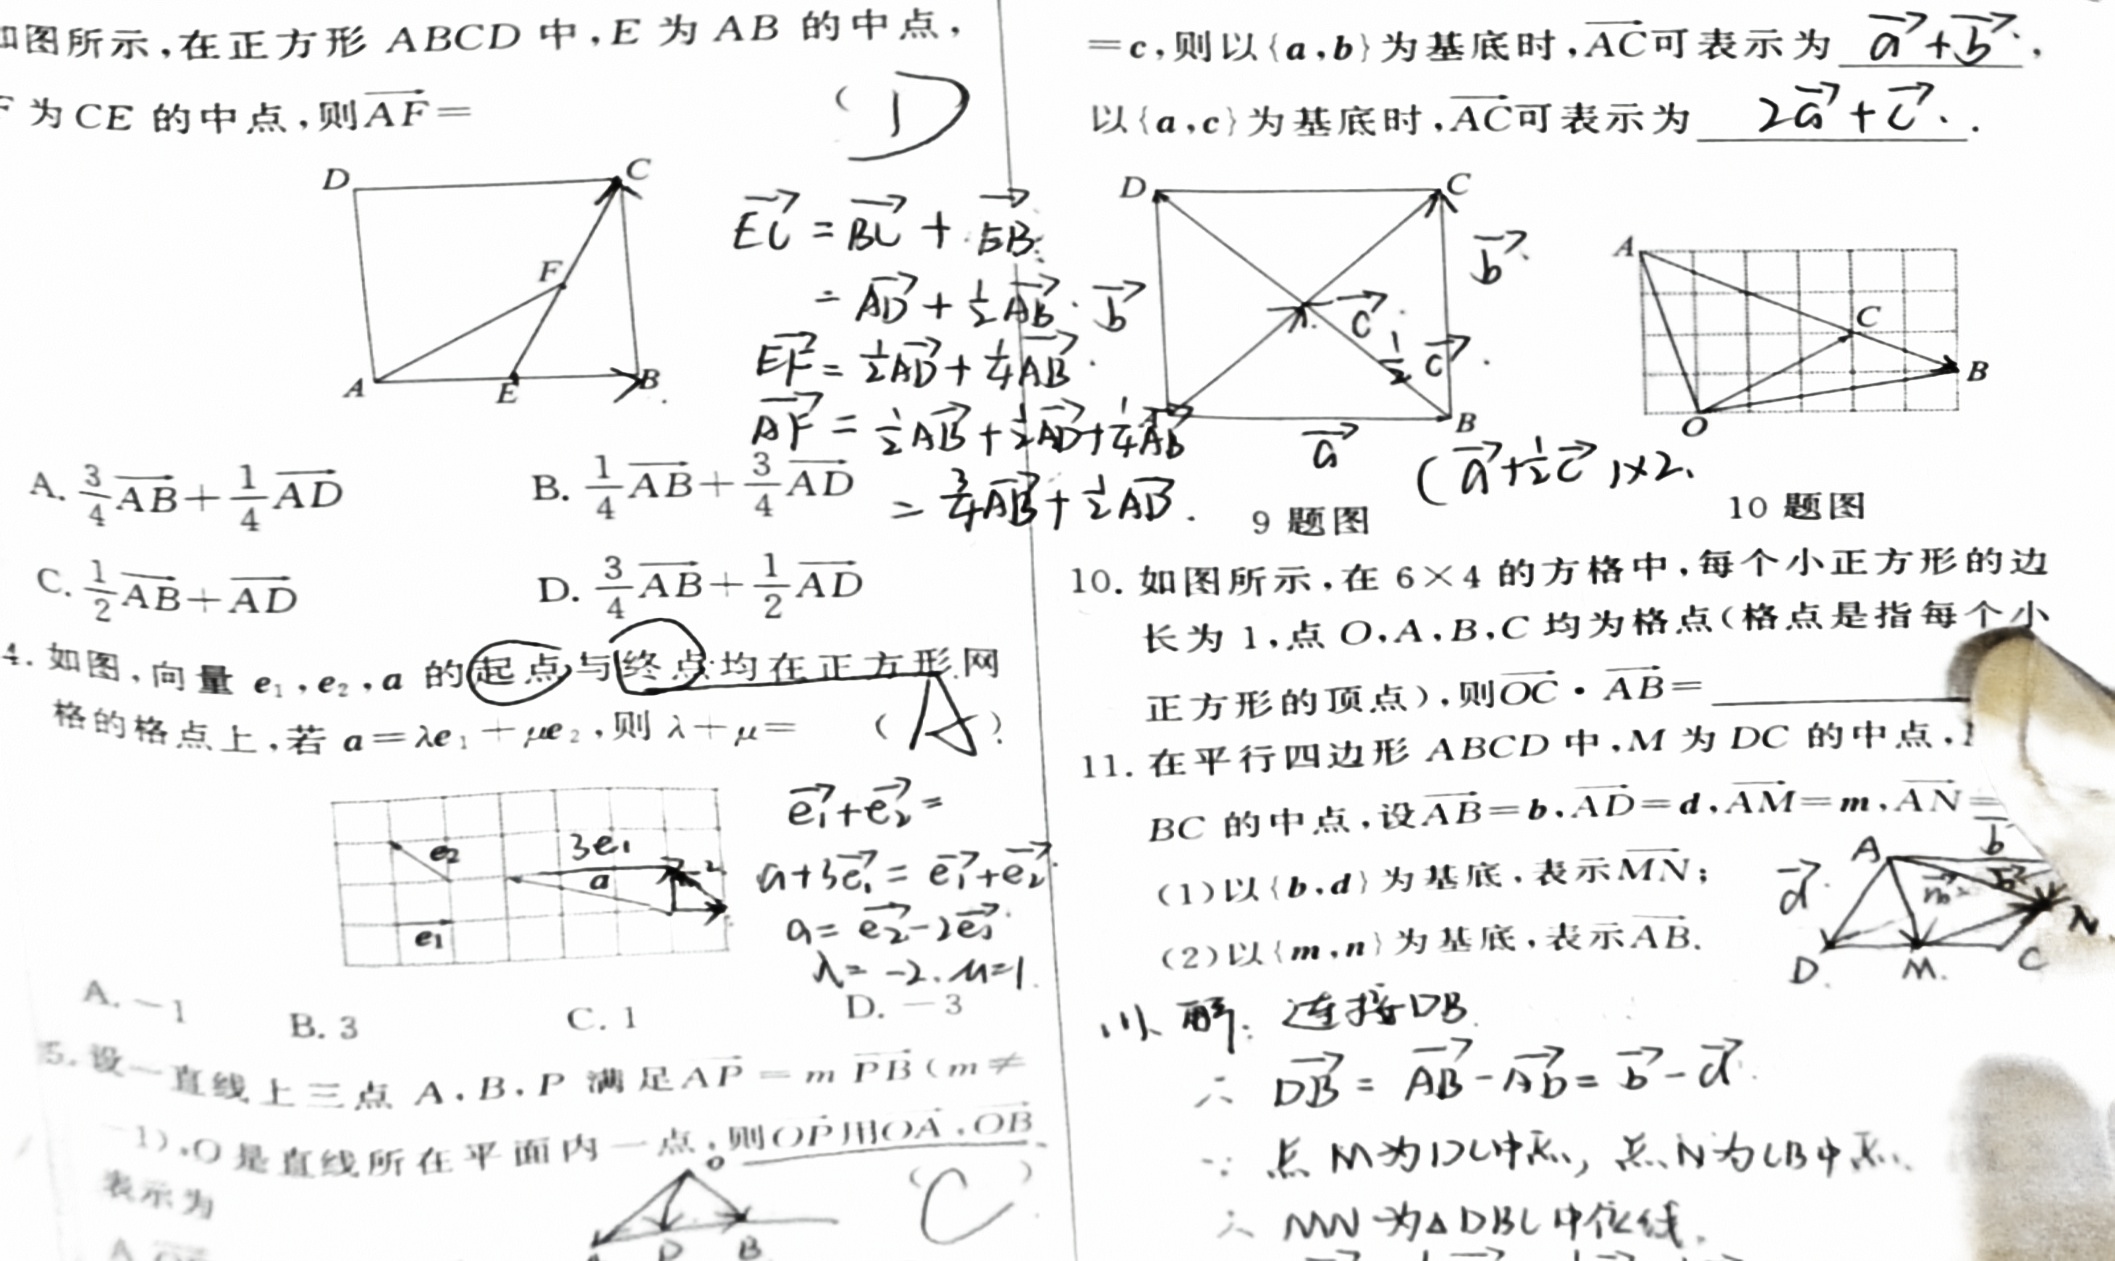 如图所示,在正方形 ABCD 中,E 为 AB 的中点,
F 为 CE 的中点,则 $\overrightarrow{AF}$= ( D
D
C
F
A
E
B
$\overrightarrow{EC}$ = $\overrightarrow{BC}$ + $\overrightarrow{EB}$.
= $\overrightarrow{AD}$ + $\frac{1}{2}\overrightarrow{AB}$.
$\overrightarrow{EF}$ = $\frac{1}{2}\overrightarrow{AD}$ + $\frac{1}{4}\overrightarrow{AB}$.
$\overrightarrow{AF}$ = $\frac{1}{2}\overrightarrow{AB}$ + $\frac{1}{2}\overrightarrow{AD}$ + $\frac{1}{4}\overrightarrow{AB}$
= $\frac{3}{4}\overrightarrow{AB}$ + $\frac{1}{2}\overrightarrow{AD}$.
A. $\frac{3}{4}\overrightarrow{AB}+\frac{1}{4}\overrightarrow{AD}$ B. $\frac{1}{4}\overrightarrow{AB}+\frac{3}{4}\overrightarrow{AD}$
C. $\frac{1}{2}\overrightarrow{AB}+\overrightarrow{AD}$ D. $\frac{3}{4}\overrightarrow{AB}+\frac{1}{2}\overrightarrow{AD}$
4. 如图,向量 e₁,e₂,a 的起点与终点均在正方形网
格的格点上,若 a=λe₁+μe₂,则 λ+μ= ( A ).
e₂
3e₁
a
e₁
$\overrightarrow{e_1}$+$\overrightarrow{e_2}$ =
a+3$\overrightarrow{e_1}$ = $\overrightarrow{e_1}$+$\overrightarrow{e_2}$
a = $\overrightarrow{e_2}$-2$\overrightarrow{e_1}$
λ = -2. μ=1.
A. -1 B. 3 C. 1 D. -3
5. 设一直线上三点 A,B,P 满足 $\overrightarrow{AP}$=m$\overrightarrow{PB}$(m≠
-1),O 是直线所在平面内一点,则 $\overrightarrow{OP}$ 用 $\overrightarrow{OA}$,$\overrightarrow{OB}$
表示为 ( C )
O
B
=c,则以{a,b}为基底时,$\overrightarrow{AC}$可表示为 $\overrightarrow{a}$+$\overrightarrow{b}$. ,
以{a,c}为基底时,$\overrightarrow{AC}$可表示为 2$\overrightarrow{a}$+$\overrightarrow{c}$. .
D
C
$\overrightarrow{b}$
$\overrightarrow{b}$.
$\overrightarrow{c}$.
$\frac{1}{2}\overrightarrow{c}$.
B
$\overrightarrow{a}$
($\overrightarrow{a}$+$\frac{1}{2}\overrightarrow{c}$)×2.
A
C
B
O
9 题图 10 题图
10. 如图所示,在 6×4 的方格中,每个小正方形的边
长为 1,点 O,A,B,C 均为格点(格点是指每个小
正方形的顶点),则 $\overrightarrow{OC}$·$\overrightarrow{AB}$=
11. 在平行四边形 ABCD 中,M 为 DC 的中点,
BC 的中点,设 $\overrightarrow{AB}$=b,$\overrightarrow{AD}$=d,$\overrightarrow{AM}$=m,$\overrightarrow{AN}$=
(1)以{b,d}为基底,表示 $\overrightarrow{MN}$;
(2)以{m,n}为基底,表示 $\overrightarrow{AB}$.
A
b
$\overrightarrow{d}$.
$\overrightarrow{m}$
N
D
M.
C
(1). 解: 连接DB.
∴ $\overrightarrow{DB}$ = $\overrightarrow{AB}$-$\overrightarrow{AD}$ = $\overrightarrow{b}$-$\overrightarrow{d}$.
∵ 点 M 为 DC 中点, 点 N 为 CB 中点.
∴ MN 为 △DBC 中位线.